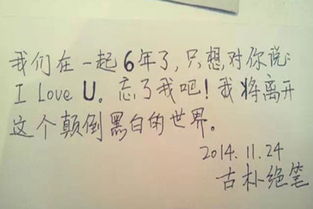 我们在一起6年了,只想对你说:
I Love U。忘了我吧!我将离开
这个颠倒黑白的世界。
2014.11.24
古朴绝笔